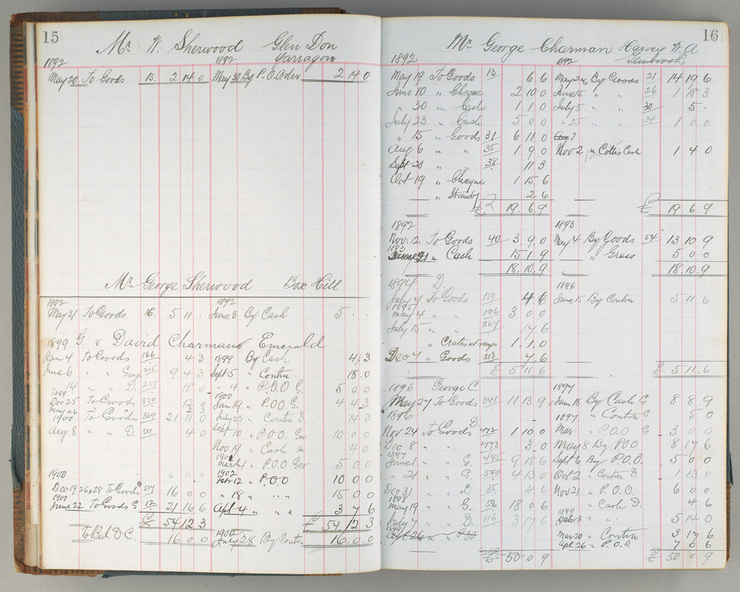 15
Mr W. Sherwood Glen Don
Garragon
1892 1892
May 20 To Goods 13. 2 14 0 May 30 By P.O. Order 2 14 0
Mr George Sherwood Box Hill
1892 1892
May 31 To Goods 16 5 11 June 3 By Cash 5
1899 G. & David Charman Emerald
Jan 4 To Goods 166 4 3 1899 By Cash 4 3
June 6 " " 9 4 3 Sept 5 " Contra 18 0
14 " D. 18 0 " 4 " P.O.O G. 5 0 0
1899 1900
Dec 25 To Goods 12 Jan 19 " P.O.O G. 4 4 3
1900 To Goods 369 21 11 0 " Contra D. 14 3
Aug 8 " " D. 4 0 Sept 10 " P.O.O Geo 10 0 0
Nov 19 " Cash 4 0
March 1 " P.O.O Geo 5 0 0
1900 1902
Dec 19 26 & 28 To Goods 16 0 0 Feb 12 " P.O.O 10 0 0
1901 " 18 " " " 15 0 0
June 22 To Goods G 21 16 6 Apl 4 " " " 3 7 6
£ 54 12 3 £ 54 12 3
To Bal D C 16 0 0 July 28 By Contra 16 0 0
16
Mr George Charman Harvey W. A
1892 1892
May 19 To Goods 13 6 6 By Goods 21 14 19 6
June 10 " Cheque 2 10 0 June 15 " " 26 1 18 3
" 30 " Cash 1 1 0 July 5 " " 30 5
July 23 " Cash 5 0 0 " 25 " " 34 1 0 0
" 15 " Goods 31 6 11 0
Aug 6 " " 35 1 9 0 Nov 2 " Cash 1 4 0
Sept 20 " " 38 11 3
Oct 19 " Cheque 1 15 6
" 2 6
£ 19 6 9 £ 19. 6. 9
1892 1893
Nov. 12 To Goods 40 3 9 0 May 4 By Goods 54 13 10 9
" Cash 15 1 9 " Grass 5 0 0
18. 10. 9 18. 10. 9
1894 D. 1896
July 7 To Goods 159 4 6 June 15 By Contra 5 11 6
1895
May 4 " " 196 3 0 0
July 15 " " 267 17 6
" Crates 1. 1. 0
Dec 7 " Goods 313 7 6
£ 5. 11 6 £ 5. 11. 6
1896 George C. 1897
May 27 To Goods 341 11 13 9 Jan 18 By Cash G 8 8 9
1896 1897 " Contra G 5 0
Nov 24 To Goods D 472 1 10 0 Mar " P.O.O G 3 0 0
Dec 8 " " 473 3 0 May 8 By P.O.O 8 17 6
1897
June 1 " G. 495 9 18 6 Sept 6 By P.O.O. 5 0 0
" 21 " G. 540 4 13 0 Oct 2 " Contra D 1 13 0
Dec 31 " D. 35 4 6 Nov 21 " P.O.O 6 0 0
May 19 " G. 18 0 6 " Cash D. 4 6
1898
July 7 " D. 116 3 17 6 5 14 0
Mar 20 " Contra 3 17 6
Apl 26 " P.O.O 7 0 6
£ 50 0 9 £ 50 0 9